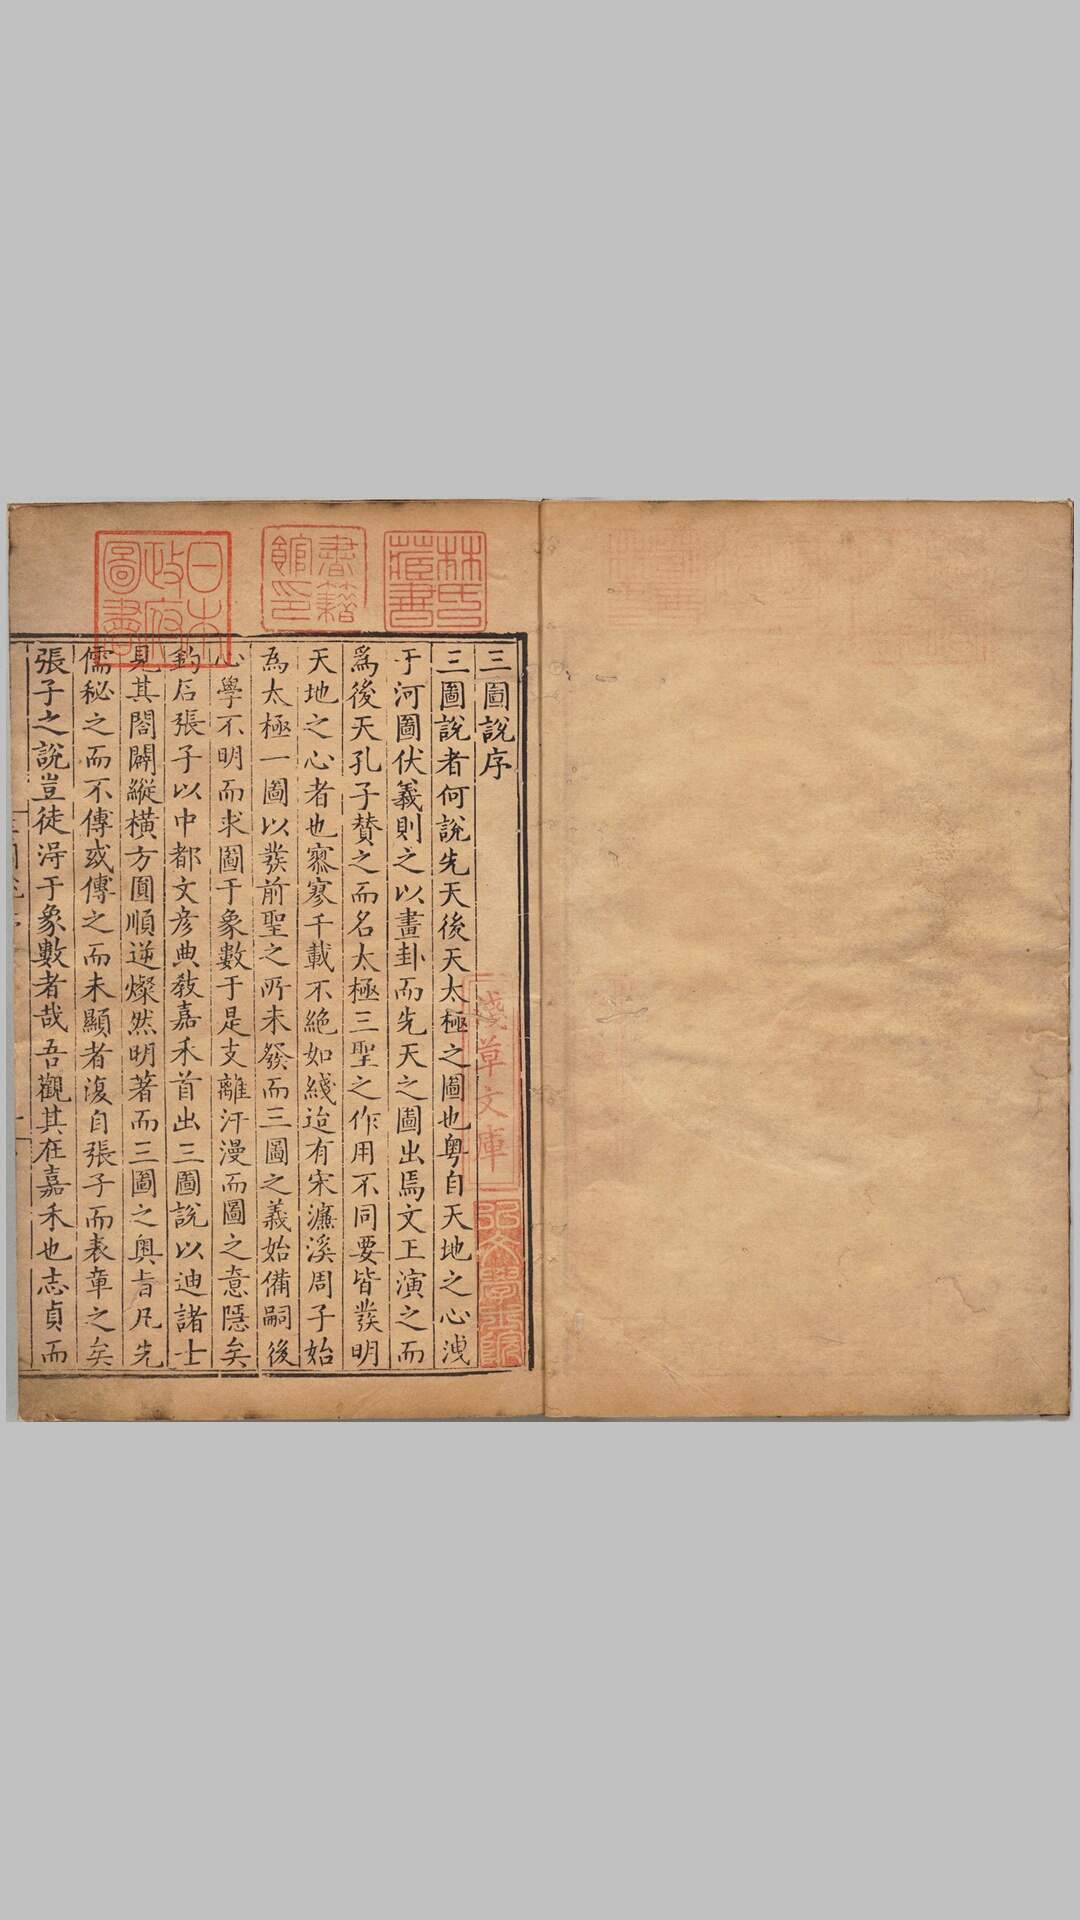 三圖說序
三圖說者何說先天後天太極之圖也粵自天地之心洩
于河圖伏羲則之以畫卦而先天之圖出焉文王演之而
爲後天孔子贊之而名太極三聖之作用不同要皆發明
天地之心者也寥寥千載不絕如綫迨有宋濂溪周子始
爲太極一圖以發前聖之所未發而三圖之義始備嗣後
心學不明而求圖于象數于是支離汗漫而圖之意隱矣
釣石張子以中都文彥典教嘉禾首出三圖說以迪諸士
見其闔闢縱橫方圓順逆燦然明著而三圖之奧旨凡先
儒秘之而不傳或傳之而未顯者復自張子而表章之矣
張子之說豈徒淂于象數者哉吾觀其在嘉禾也志貞而
林氏藏書
書籍館印
日本政府圖書
淺草文庫
弘文學士院